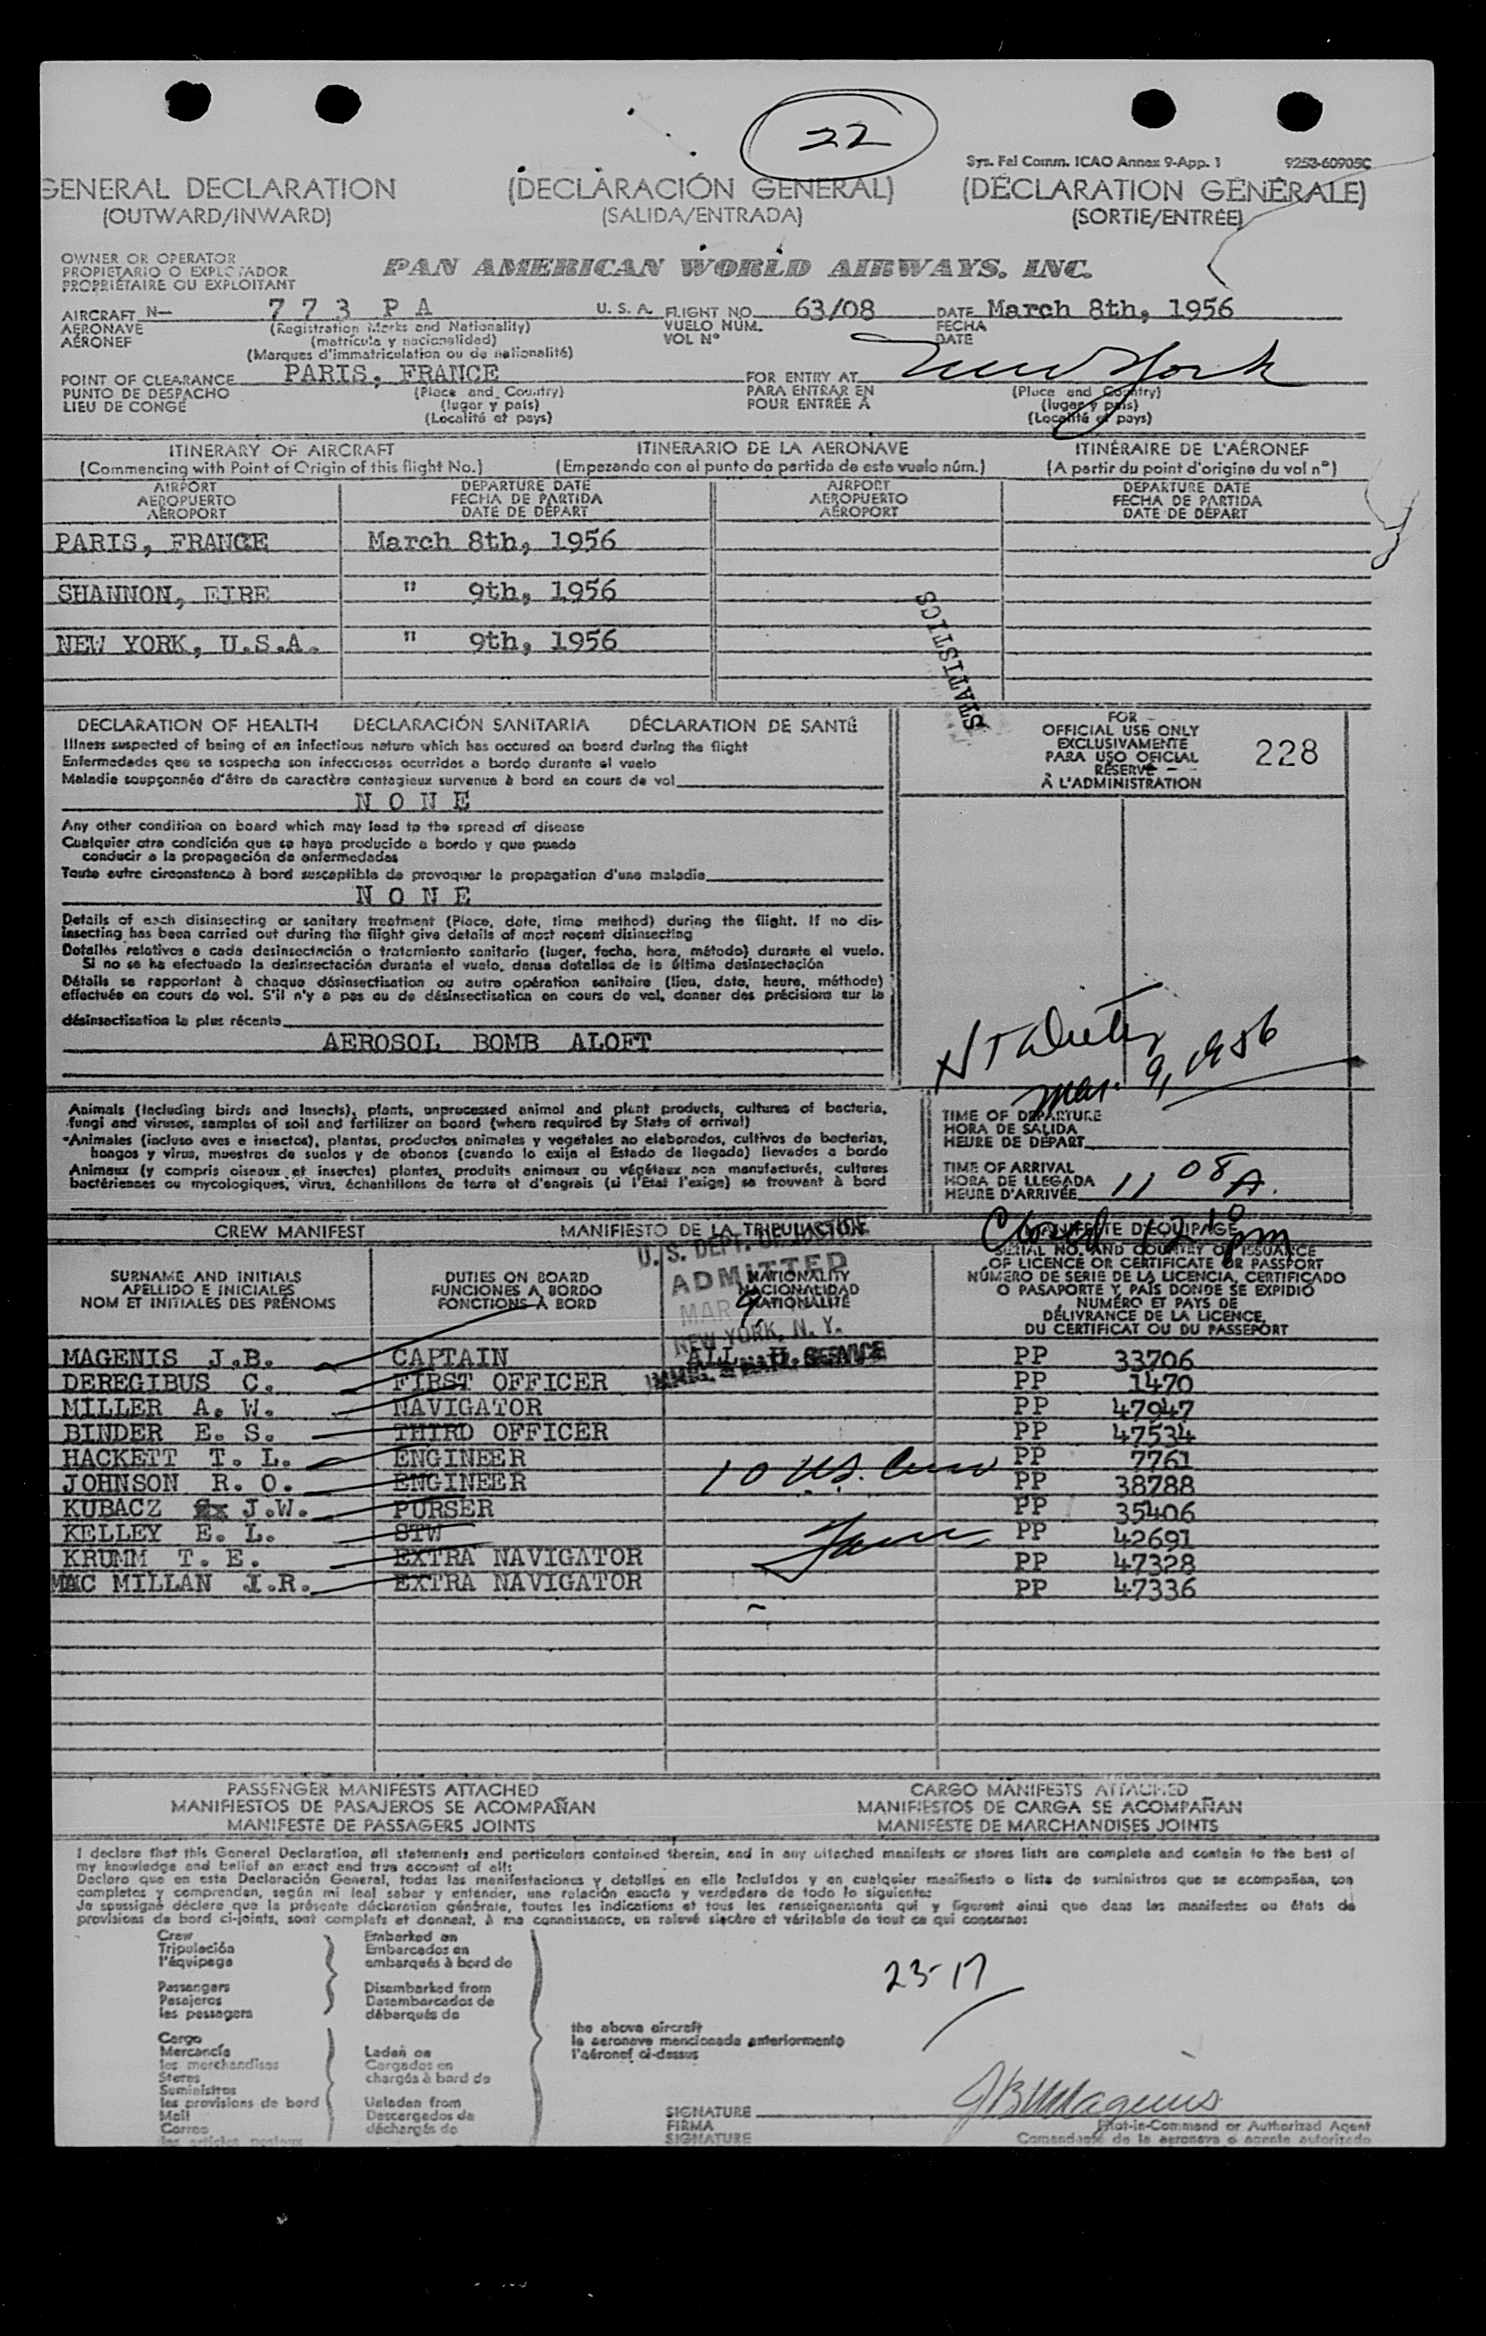 22
Sys. Fal Comm. ICAO Annex 9-App. 1 9253-60905C
GENERAL DECLARATION (DECLARACIÓN GENERAL) (DÉCLARATION GÉNÉRALE)
(OUTWARD/INWARD) (SALIDA/ENTRADA) (SORTIE/ENTRÉE)
OWNER OR OPERATOR
PROPIETARIO O EXPLOTADOR
PROPRIÉTAIRE OU EXPLOITANT
PAN AMERICAN WORLD AIRWAYS, INC.
AIRCRAFT N- 7 7 3 P A U. S. A. FLIGHT NO. 63/08 DATE March 8th, 1956
AERONAVE (Registration Marks and Nationality) VUELO NÚM. FECHA
AÉRONEF (matrícula y nacionalidad) VOL Nº DATE
(Marques d'immatriculation ou de nationalité)
POINT OF CLEARANCE PARIS, FRANCE FOR ENTRY AT New York
PUNTO DE DESPACHO (Place and Country) PARA ENTRAR EN (Place and Country)
LIEU DE CONGÉ (lugar y país) POUR ENTRÉE À (lugar y país)
(Localité et pays) (Localité et pays)
ITINERARY OF AIRCRAFT ITINERARIO DE LA AERONAVE ITINÉRAIRE DE L'AÉRONEF
(Commencing with Point of Origin of this flight No.) (Empezando con el punto de partida de este vuelo núm.) (A partir du point d'origine du vol nº)
AIRPORT DEPARTURE DATE AIRPORT DEPARTURE DATE
AEROPUERTO FECHA DE PARTIDA AEROPUERTO FECHA DE PARTIDA
AÉROPORT DATE DE DÉPART AÉROPORT DATE DE DÉPART
PARIS, FRANCE March 8th, 1956
SHANNON, EIRE " 9th, 1956
NEW YORK, U.S.A. " 9th, 1956
STATISTICS
DECLARATION OF HEALTH DECLARACIÓN SANITARIA DÉCLARATION DE SANTÉ
Illness suspected of being of an infectious nature which has occured on board during the flight
Enfermedades que se sospecha son infecciosas ocurridas a bordo durante el vuelo
Maladie soupçonnée d'être de caractère contagieux survenue à bord en cours de vol
N O N E
Any other condition on board which may lead to the spread of disease
Cualquier otra condición que se haya producido a bordo y que pueda
conducir a la propagación de enfermedades
Toute autre circonstance à bord susceptible de provoquer la propagation d'une maladie
N O N E
Details of each disinsecting or sanitary treatment (Place, date, time method) during the flight. If no dis-
insecting has been carried out during the flight give details of most recent disinsecting
Detalles relativos a cada desinsectación o tratamiento sanitario (lugar, fecha, hora, método) durante el vuelo.
Si no se ha efectuado la desinsectación durante el vuelo, dense detalles de la última desinsectación
Détails se rapportant à chaque désinsectisation ou autre opération sanitaire (lieu, date, heure, méthode)
effectuée en cours de vol. S'il n'y a pas eu de désinsectisation en cours de vol, donner des précisions sur la
désinsectisation la plus récente
AEROSOL BOMB ALOFT
FOR
OFFICIAL USE ONLY
EXCLUSIVAMENTE
PARA USO OFICIAL
RÉSERVÉ
À L'ADMINISTRATION
228
Mar. 9, 1956
Animals (including birds and insects), plants, unprocessed animal and plant products, cultures of bacteria,
fungi and viruses, samples of soil and fertilizer on board (where required by State of arrival)
Animales (incluso aves e insectos), plantas, productos animales y vegetales no elaborados, cultivos de bacterias,
hongos y virus, muestras de suelos y de abonos (cuando lo exija el Estado de llegada) llevados a bordo
Animaux (y compris oiseaux et insectes) plantes, produits animaux ou végétaux non manufacturés, cultures
bactériennes ou mycologiques, virus, échantillons de terre et d'engrais (si l'État l'exige) se trouvant à bord
TIME OF DEPARTURE
HORA DE SALIDA
HEURE DE DÉPART
TIME OF ARRIVAL
HORA DE LLEGADA
HEURE D'ARRIVÉE 11 08 A.
CREW MANIFEST MANIFIESTO DE LA TRIPULACIÓN MANIFESTE D'ÉQUIPAGE
Closed 12 10 pm
U. S. DEPT. OF JUSTICE
ADMITTED
MAR 9
NEW YORK, N. Y.
SURNAME AND INITIALS
APELLIDO E INICIALES
NOM ET INITIALES DES PRÉNOMS
DUTIES ON BOARD
FUNCIONES A BORDO
FONCTIONS À BORD
NATIONALITY
NACIONALIDAD
NATIONALITÉ
SERIAL NO. AND COUNTRY OF ISSUANCE
OF LICENCE OR CERTIFICATE OR PASSPORT
NÚMERO DE SERIE DE LA LICENCIA, CERTIFICADO
O PASAPORTE Y PAÍS DONDE SE EXPIDIÓ
NUMÉRO ET PAYS DE
DÉLIVRANCE DE LA LICENCE,
DU CERTIFICAT OU DU PASSEPORT
MAGENIS J.B. CAPTAIN ALL U. S. PP 33706
DEREGIBUS C. FIRST OFFICER PP 1470
MILLER A. W. NAVIGATOR PP 47947
BINDER E. S. THIRD OFFICER PP 47534
HACKETT T. L. ENGINEER PP 7761
JOHNSON R. O. ENGINEER 10 U.S. PP 38788
KUBACZ J.W. PURSER PP 35406
KELLEY E. L. STW PP 42691
KRUMM T. E. EXTRA NAVIGATOR PP 47328
MAC MILLAN J.R. EXTRA NAVIGATOR PP 47336
PASSENGER MANIFESTS ATTACHED CARGO MANIFESTS ATTACHED
MANIFIESTOS DE PASAJEROS SE ACOMPAÑAN MANIFIESTOS DE CARGA SE ACOMPAÑAN
MANIFESTE DE PASSAGERS JOINTS MANIFESTE DE MARCHANDISES JOINTS
I declare that this General Declaration, all statements and particulars contained therein, and in any attached manifests or stores lists are complete and contain to the best of
my knowledge and belief an exact and true account of all:
Declaro que en esta Declaración General, todas las manifestaciones y detalles en ella incluídos y en cualquier manifiesto o lista de suministros que se acompañan, son
completos y comprenden, según mi leal saber y entender, una relación exacta y verdadera de todo lo siguiente:
Je soussigné déclare que la présente déclaration générale, toutes les indications et tous les renseignements qui y figurent ainsi que dans les manifestes ou états de
provisions de bord ci-joints, sont complets et donnent, à ma connaissance, un relevé sincère et véritable de tout ce qui concerne:
Crew Embarked on
Tripulación Embarcados en
l'équipage embarqués à bord de
Passengers Disembarked from
Pasajeros Desembarcados de
les passagers débarqués de
23-17
the above aircraft
la aeronave mencionada anteriormente
l'aéronef ci-dessus
Cargo
Mercancía Laden on
les marchandises Cargados en
Stores chargés à bord de
Suministros
les provisions de bord Unladen from
Mail Descargados de
Correo déchargés de
les articles postaux
SIGNATURE JB Magenis
FIRMA Pilot-in-Command or Authorized Agent
SIGNATURE Comandante de la aeronave o agente autorizado